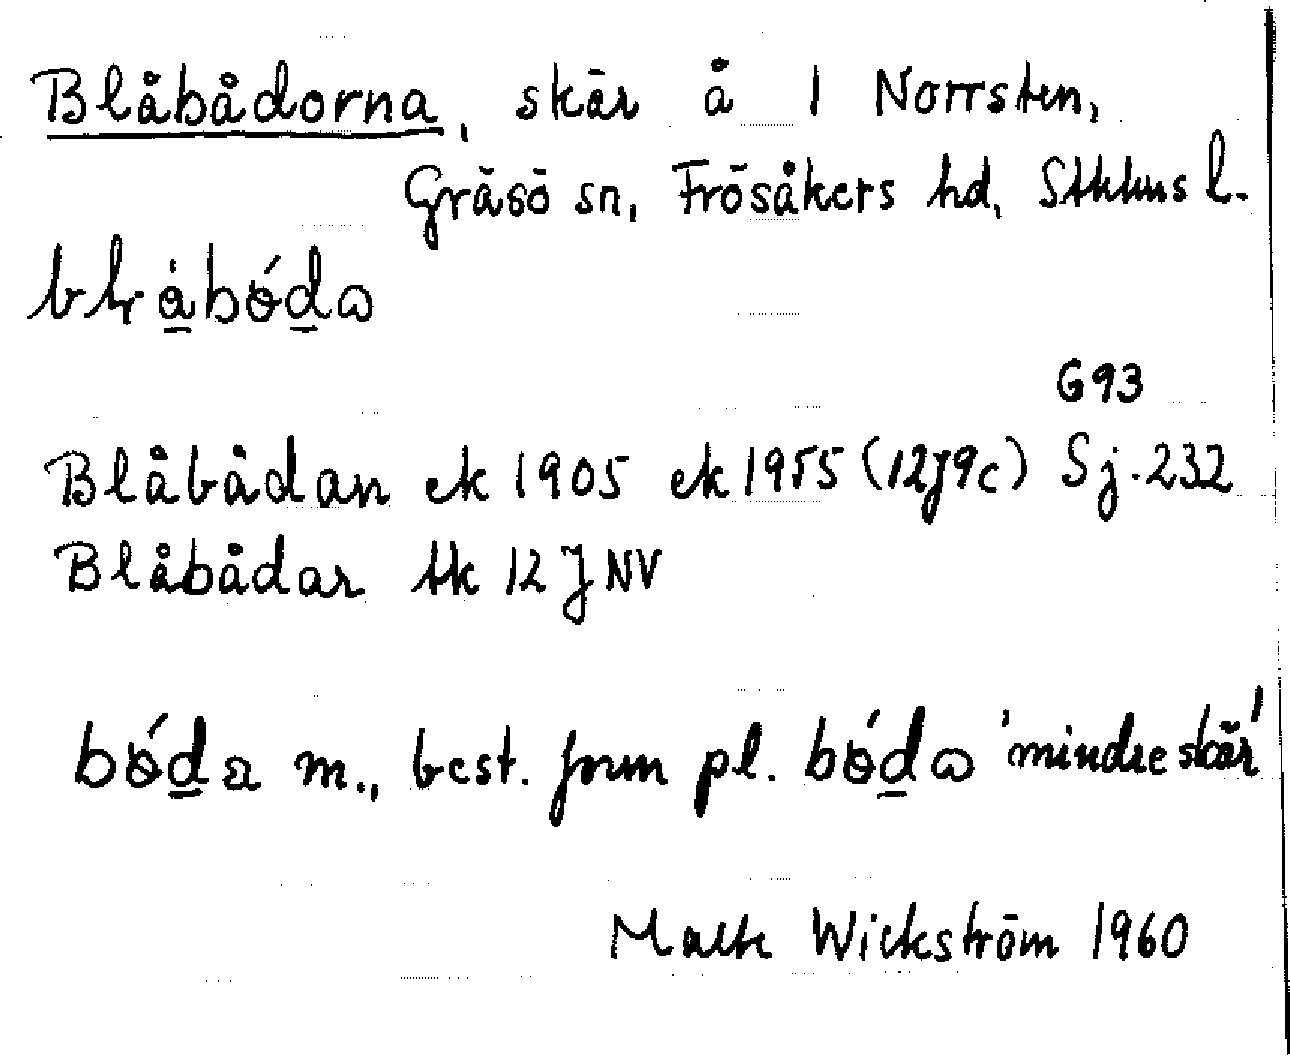 Blåbådorna, skär å 1 Norrsten,
Gräsö sn, Frösåkers hd, Sthlms l.
blåbóda
G93
Blåbådan ek 1905 ek 1955 (12J9c) Sj. 232
Blåbådar tk 12 J NV
bóda m., best. form pl. bóda 'mindre skär'
Wickström 1960